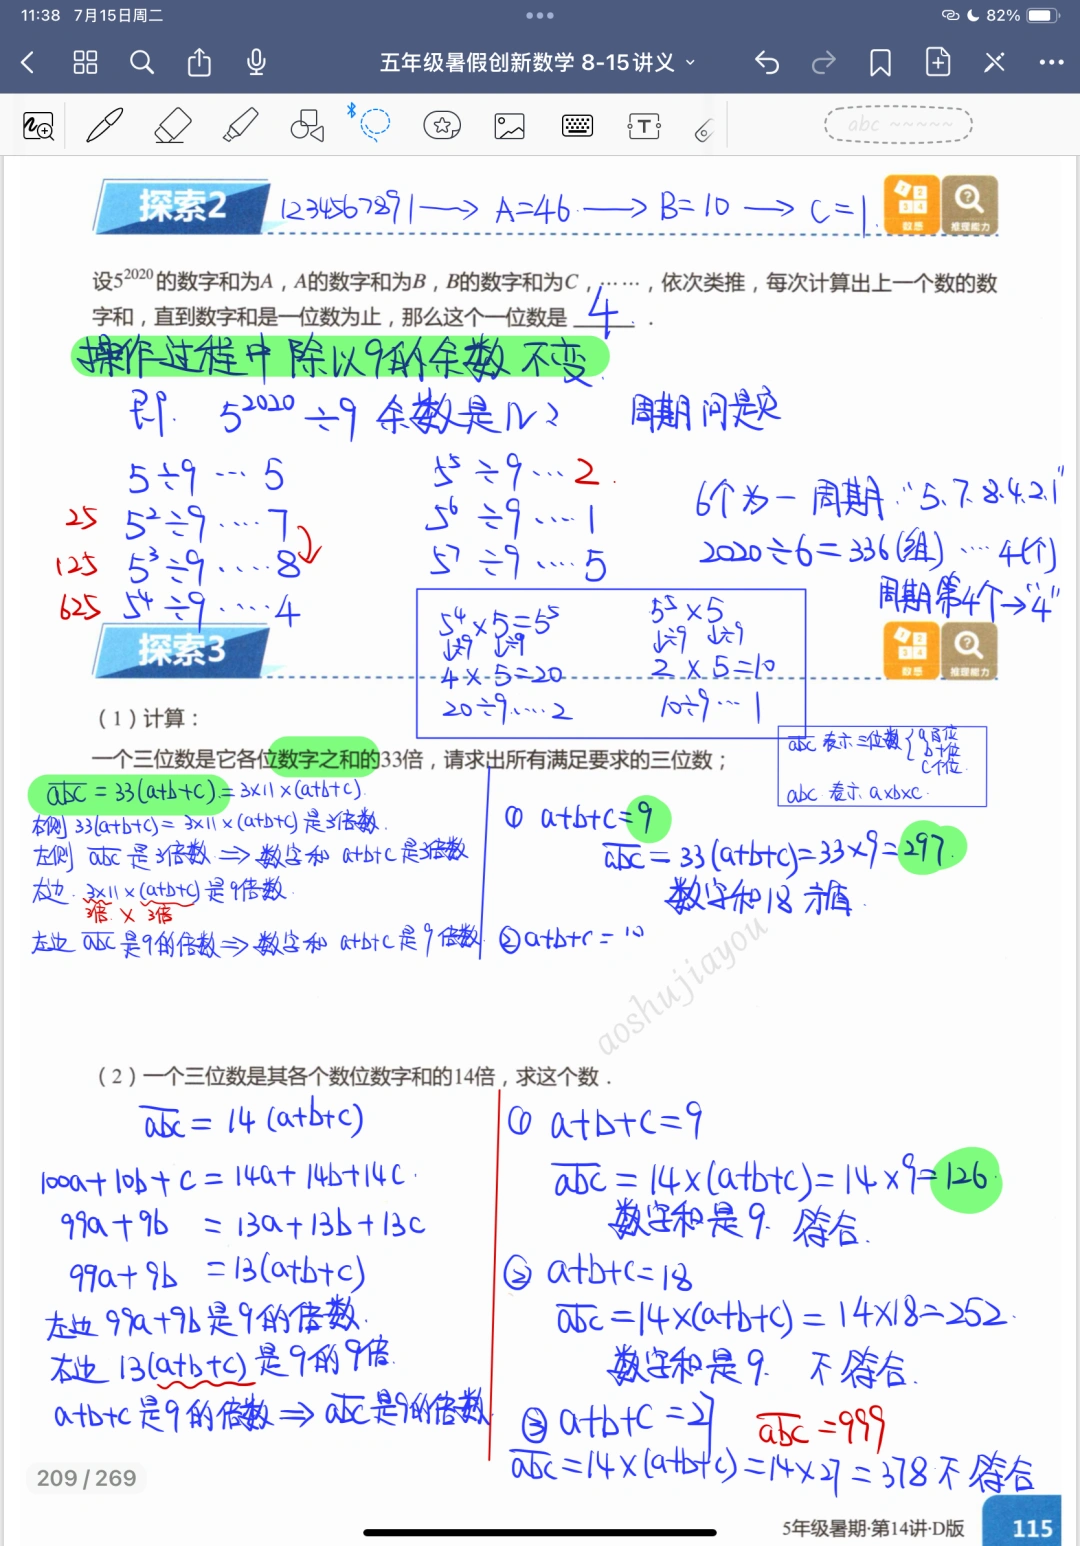 11:38 7月15日周二
82%
五年级暑假创新数学 8-15讲义
abc
T
探索2
1234567891 ⟶ A=46 ⟶ B=10 ⟶ C=1.
数感
推理能力
设5²⁰²⁰的数字和为A，A的数字和为B，B的数字和为C，……，依次类推，每次计算出上一个数的数
字和，直到数字和是一位数为止，那么这个一位数是 4 .
操作过程中 除以9的余数 不变.
即. 5²⁰²⁰÷9 余数是几? 周期问是页
5÷9 … 5
25 5²÷9 …. 7
125 5³÷9 ….. 8
625 5⁴÷9 ….. 4
5⁵÷9 … 2.
5⁶÷9 …. 1
5⁷÷9 …. 5
6个为一周期."5.7.8.4.2.1"
2020÷6=336(组) … 4(个)
周期第4个→"4"
5⁴×5=5⁵
↓÷9 ↓÷9
4×5=20
20÷9…. 2
5⁵×5
↓÷9 ↓÷9
2×5=10
10÷9… 1
探索3
数感
推理能力
（1）计算：
一个三位数是它各位数字之和的33倍，请求出所有满足要求的三位数；
abc 表示三位数 { a百位 b十位 c个位.
abc 表示 a×b×c.
abc=33(a+b+c)=3×11×(a+b+c).
右侧 33(a+b+c)=3×11×(a+b+c) 是3倍数.
左侧 abc 是3倍数 ⟹ 数字和 a+b+c 是3倍数
右边. 3×11×(a+b+c) 是9倍数.
3倍 × 3倍
左边 abc 是9的倍数 ⟹ 数字和 a+b+c 是9倍数
① a+b+c=9
abc=33(a+b+c)=33×9=297.
数字和18
② a+b+c=
aoshujiayou
（2）一个三位数是其各个数位数字和的14倍，求这个数．
abc = 14(a+b+c)
100a+10b+c=14a+14b+14c.
99a+9b =13a+13b+13c
99a+9b =13(a+b+c)
左边 99a+9b是9的倍数.
右边 13(a+b+c)是9的9倍.
a+b+c是9的倍数 ⟹ abc是9的倍数
① a+b+c=9
abc=14×(a+b+c)=14×9=126.
数字和是9. 符合.
② a+b+c=18
abc=14×(a+b+c)=14×18=252.
数字和是9. 不符合.
③ a+b+c=27 abc=999
abc=14×(a+b+c)=14×27=378 不符合
209 / 269
5年级暑期·第14讲·D版
115